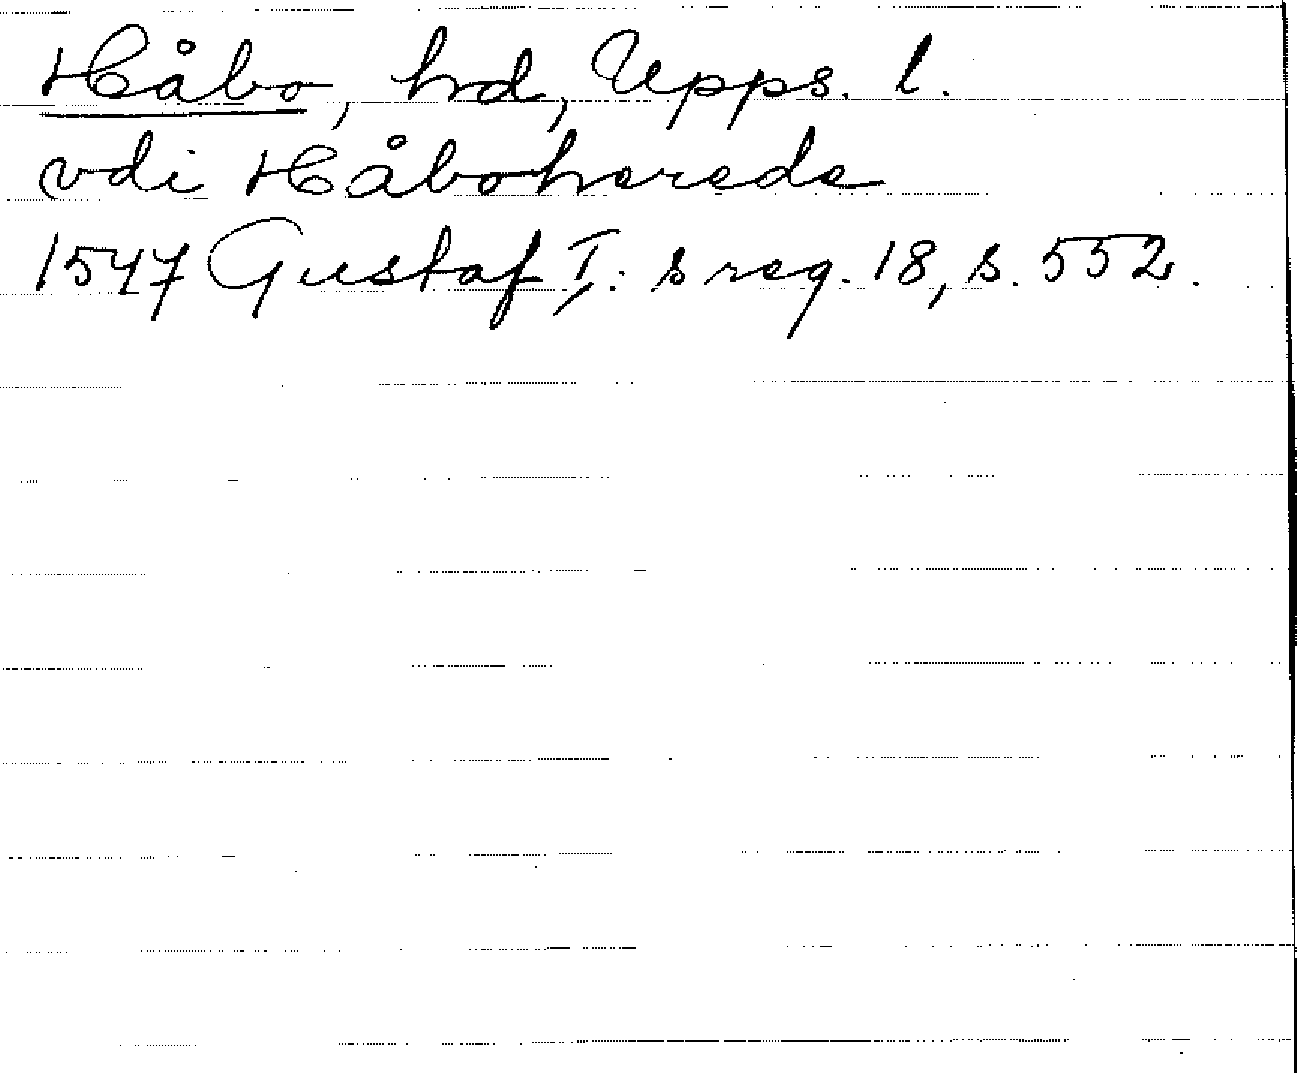 Håbo, hrd, Upps. l.
vdi Håboherede
1547 Gustaf I:s reg. 18, s. 552.